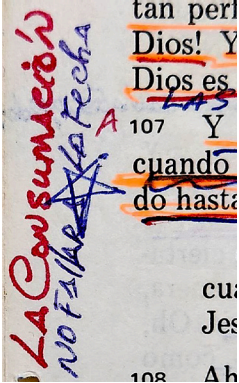 LA CONSUMACIÓN
NO FIJAR LA FECHA
tan perf
Dios! Y
Dios es
LAS
A
107 Y
cuando
do hasta
cua
Jes
108 Ah